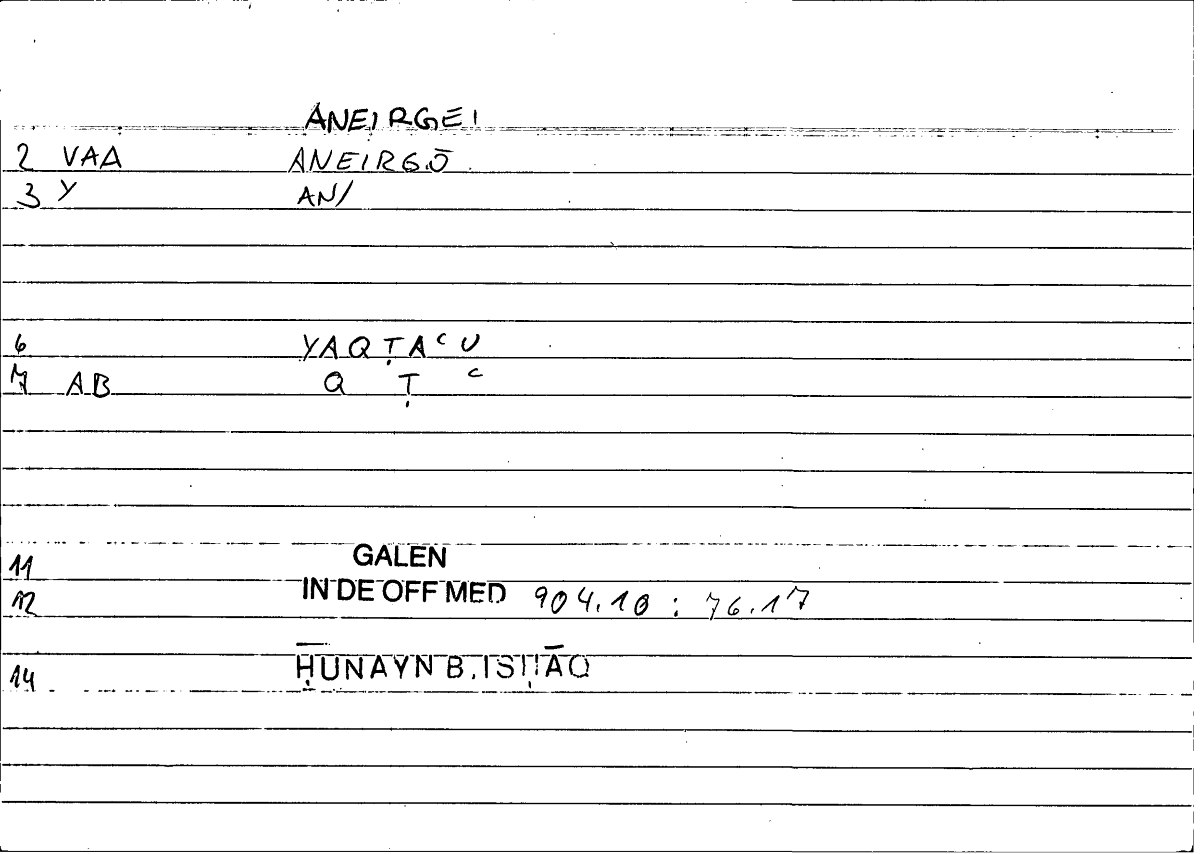 ANEIRGEI
2 VAA ANEIRGŌ
3 Y AN/
6 YAQṬAᶜU
7 AB Q Ṭ ᶜ
11 GALEN
12 IN DE OFF MED 904.10 : 76.17
14 ḤUNAYN B. ISḤĀQ